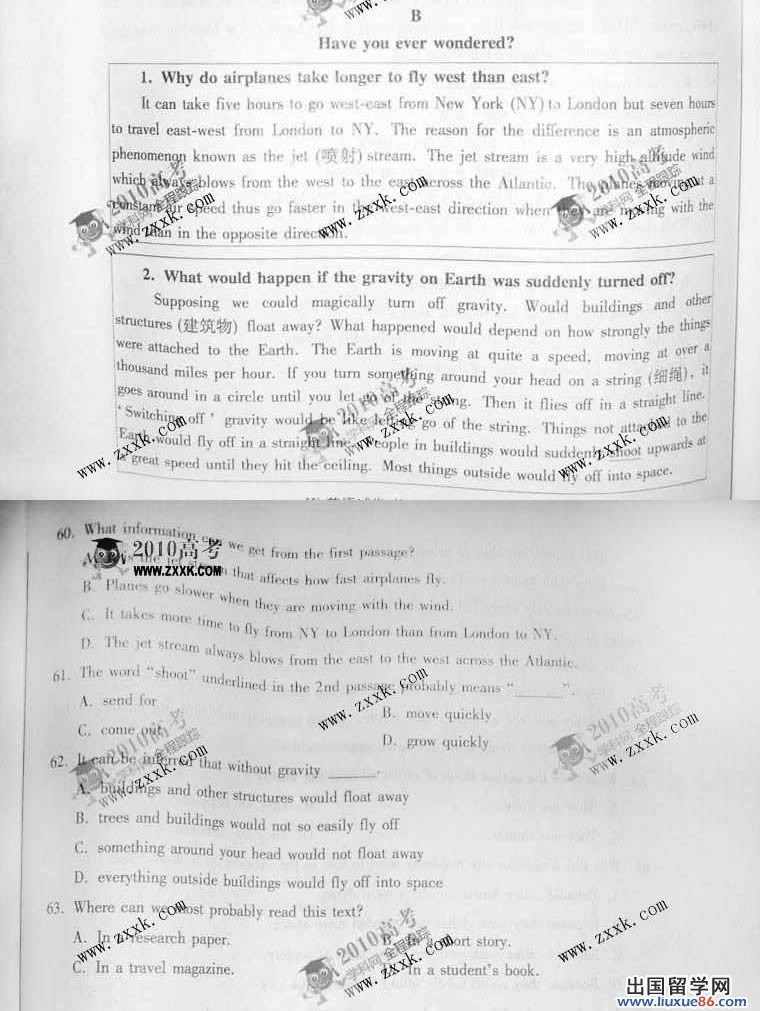 www.zxxk.com
B
Have you ever wondered?
1. Why do airplanes take longer to fly west than east?
It can take five hours to go west-east from New York (NY) to London but seven hours
to travel east-west from London to NY. The reason for the difference is an atmospheric
phenomenon known as the jet (喷射) stream. The jet stream is a very high altitude wind
which always blows from the west to the east across the Atlantic. The planes moving at a
constant air speed thus go faster in the west-east direction when they are moving with the
wind than in the opposite direction.
2010高考
学科网 全程跟踪
www.zxxk.com
2010高考
学科网 全程跟踪
www.zxxk.com
2. What would happen if the gravity on Earth was suddenly turned off?
Supposing we could magically turn off gravity. Would buildings and other
structures (建筑物) float away? What happened would depend on how strongly the things
were attached to the Earth. The Earth is moving at quite a speed, moving at over a
thousand miles per hour. If you turn something around your head on a string (细绳), it
goes around in a circle until you let go of the string. Then it flies off in a straight line.
'Switching off' gravity would be like letting go of the string. Things not attached to the
Earth would fly off in a straight line. People in buildings would suddenly shoot upwards at
a great speed until they hit the ceiling. Most things outside would fly off into space.
www.zxxk.com
2010高考
学科网 全程跟踪
www.zxxk.com
www.zxxk.com
60. What information can we get from the first passage?
A. It is the jet stream that affects how fast airplanes fly.
B. Planes go slower when they are moving with the wind.
C. It takes more time to fly from NY to London than from London to NY.
D. The jet stream always blows from the east to the west across the Atlantic.
2010高考
WWW.ZXXK.COM
61. The word "shoot" underlined in the 2nd passage probably means "______".
A. send for
B. move quickly
C. come out
D. grow quickly
www.zxxk.com
2010高考
学科网 全程跟踪
www.zxxk.com
2010高考
学科网 全程跟踪
www.zxxk.com
62. It can be inferred that without gravity ______.
A. buildings and other structures would float away
B. trees and buildings would not so easily fly off
C. something around your head would not float away
D. everything outside buildings would fly off into space
63. Where can we most probably read this text?
A. In a research paper.
B. In a short story.
C. In a travel magazine.
D. In a student's book.
www.zxxk.com
2010高考
学科网 全程跟踪
www.zxxk.com
出国留学网
www.liuxue86.com